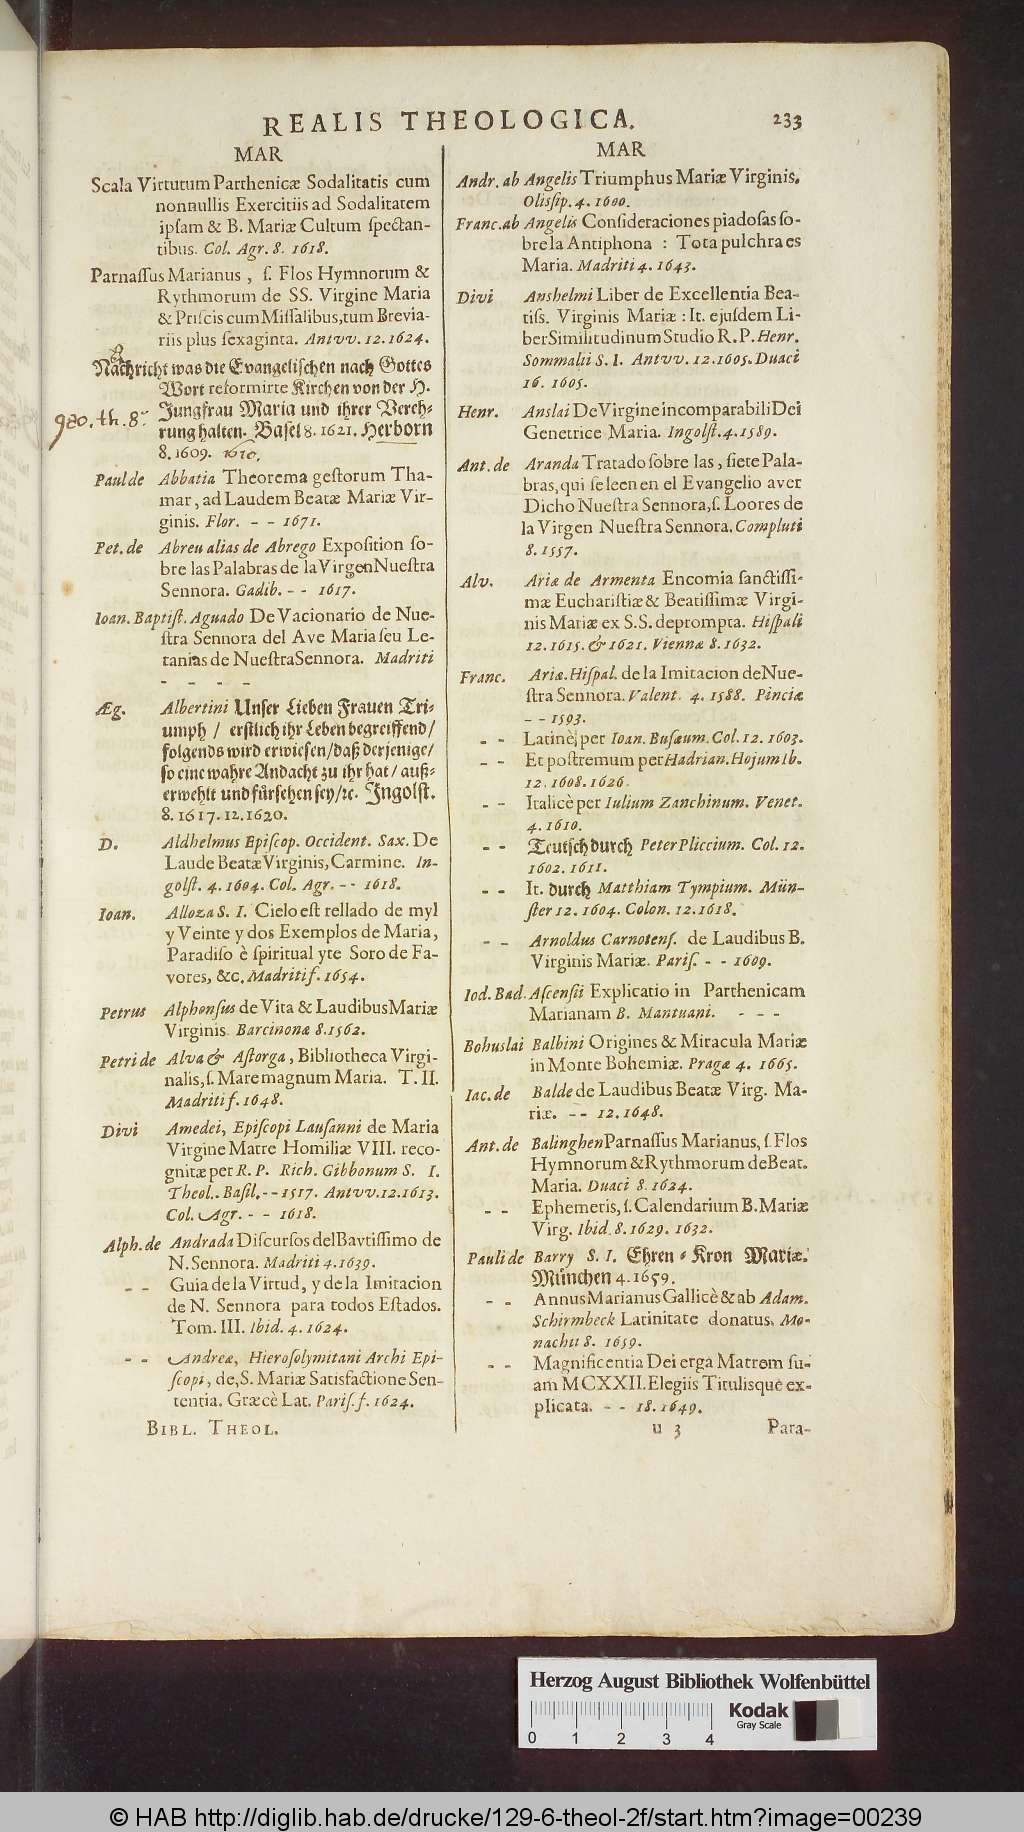 REALIS THEOLOGICA. 233
MAR
Scala Virtutum Parthenicæ Sodalitatis cum
nonnullis Exercitiis ad Sodalitatem
ipsam & B. Mariæ Cultum spectan-
tibus. Col. Agr. 8. 1618.
Parnassus Marianus, s. Flos Hymnorum &
Rythmorum de SS. Virgine Maria
& Priscis cum Missalibus, tum Brevia-
riis plus sexaginta. Antvv. 12. 1624.
Nachricht was die Evangelischen nach Gottes
Wort reformirte Kirchen von der H.
980. th. 8. Jungfrau Maria und ihrer Vereh-
rung halten. Basel 8. 1621. Herborn
8. 1609. 1610.
Paul de Abbatia Theorema gestorum Tha-
mar, ad Laudem Beatæ Mariæ Vir-
ginis. Flor. - - 1671.
Pet. de Abreu alias de Abrego Exposition so-
bre las Palabras de la Virgen Nuestra
Sennora. Gadib. - - 1617.
Ioan. Baptist. Aguado De Vacionario de Nue-
stra Sennora del Ave Maria seu Le-
tanias de Nuestra Sennora. Madriti
- - - -
Æg. Albertini Unser Lieben Frauen Tri-
umph / erstlich ihr Leben begreiffend /
folgends wird erwiesen / daß derjenige /
so eine wahre Andacht zu ihr hat / auß-
erwehlt und fürsehen sey / ꝛc. Ingolst.
8. 1617. 12. 1620.
D. Aldhelmus Episcop. Occident. Sax. De
Laude Beatæ Virginis, Carmine. In-
golst. 4. 1604. Col. Agr. - - 1618.
Ioan. Alloza S. I. Cielo est rellado de myl
y Veinte y dos Exemplos de Maria,
Paradiso è spiritual yte Soro de Fa-
vores, &c. Madriti f. 1654.
Petrus Alphonsus de Vita & Laudibus Mariæ
Virginis. Barcinonæ 8. 1562.
Petri de Alva & Astorga, Bibliotheca Virgi-
nalis, s. Mare magnum Maria. T. II.
Madriti f. 1648.
Divi Amedei, Episcopi Lausanni de Maria
Virgine Matre Homiliæ VIII. reco-
gnitæ per R. P. Rich. Gibbonum S. I.
Theol.. Basil. - - 1517. Antvv. 12. 1613.
Col. Agr. - - 1618.
Alph. de Andrada Discursos del Bavtissimo de
N. Sennora. Madriti 4. 1639.
- - Guia de la Virtud, y de la Imitacion
de N. Sennora para todos Estados.
Tom. III. Ibid. 4. 1624.
- - Andreæ, Hierosolymitani Archi Epi-
scopi, de, S. Mariæ Satisfactione Sen-
tentia. Græcè Lat. Paris. f. 1624.
BIBL. THEOL.
MAR
Andr. ab Angelis Triumphus Mariæ Virginis.
Olissip. 4. 1600.
Franc. ab Angelis Consideraciones piadosas so-
bre la Antiphona : Tota pulchra es
Maria. Madriti 4. 1643.
Divi Anshelmi Liber de Excellentia Bea-
tiss. Virginis Mariæ : It. ejusdem Li-
ber Similitudinum Studio R. P. Henr.
Sommalii S. I. Antvv. 12. 1605. Duaci
16. 1605.
Henr. Anslai De Virgine incomparabili Dei
Genetrice Maria. Ingolst. 4. 1589.
Ant. de Aranda Tratado sobre las, siete Pala-
bras, qui se leen en el Evangelio aver
Dicho Nuestra Sennora, s. Loores de
la Virgen Nuestra Sennora. Compluti
8. 1557.
Alv. Ariæ de Armenta Encomia sanctissi-
mæ Eucharistiæ & Beatissimæ Virgi-
nis Mariæ ex S.S. deprompta. Hispali
12. 1615. & 1621. Viennæ 8. 1632.
Franc. Ariæ. Hispal. de la Imitacion de Nue-
stra Sennora. Valent. 4. 1588. Pinciæ
- - 1593.
- - Latinè, per Ioan. Busæum. Col. 12. 1603.
- - Et postremum per Hadrian. Hojum Ib.
12. 1608. 1626.
- - Italicè per Iulium Zanchinum. Venet.
4. 1610.
- - Teutsch durch Peter Pliccium. Col. 12.
1602. 1611.
- - It. durch Matthiam Tympium. Mün-
ster 12. 1604. Colon. 12. 1618.
- - Arnoldus Carnotens. de Laudibus B.
Virginis Mariæ. Paris. - - 1609.
Iod. Bad. Ascensii Explicatio in Parthenicam
Marianam B. Mantuani. - - -
Bohuslai Balbini Origines & Miracula Mariæ
in Monte Bohemiæ. Pragæ 4. 1665.
Iac. de Balde de Laudibus Beatæ Virg. Ma-
riæ. - - 12. 1648.
Ant. de Balinghen Parnassus Marianus, s. Flos
Hymnorum & Rythmorum de Beat.
Maria. Duaci 8. 1624.
- - Ephemeris, s. Calendarium B. Mariæ
Virg. Ibid. 8. 1629. 1632.
Pauli de Barry S. I. Ehren-Kron Mariæ.
München 4. 1659.
- - Annus Marianus Gallicè & ab Adam.
Schirmbeck Latinitate donatus. Mo-
nachii 8. 1659.
- - Magnificentia Dei erga Matrem su-
am MCXXII. Elegiis Titulisque ex-
plicata. - - 18. 1649.
u 3 Para-
Herzog August Bibliothek Wolfenbüttel
0 1 2 3 4
Kodak
Gray Scale
© HAB http://diglib.hab.de/drucke/129-6-theol-2f/start.htm?image=00239